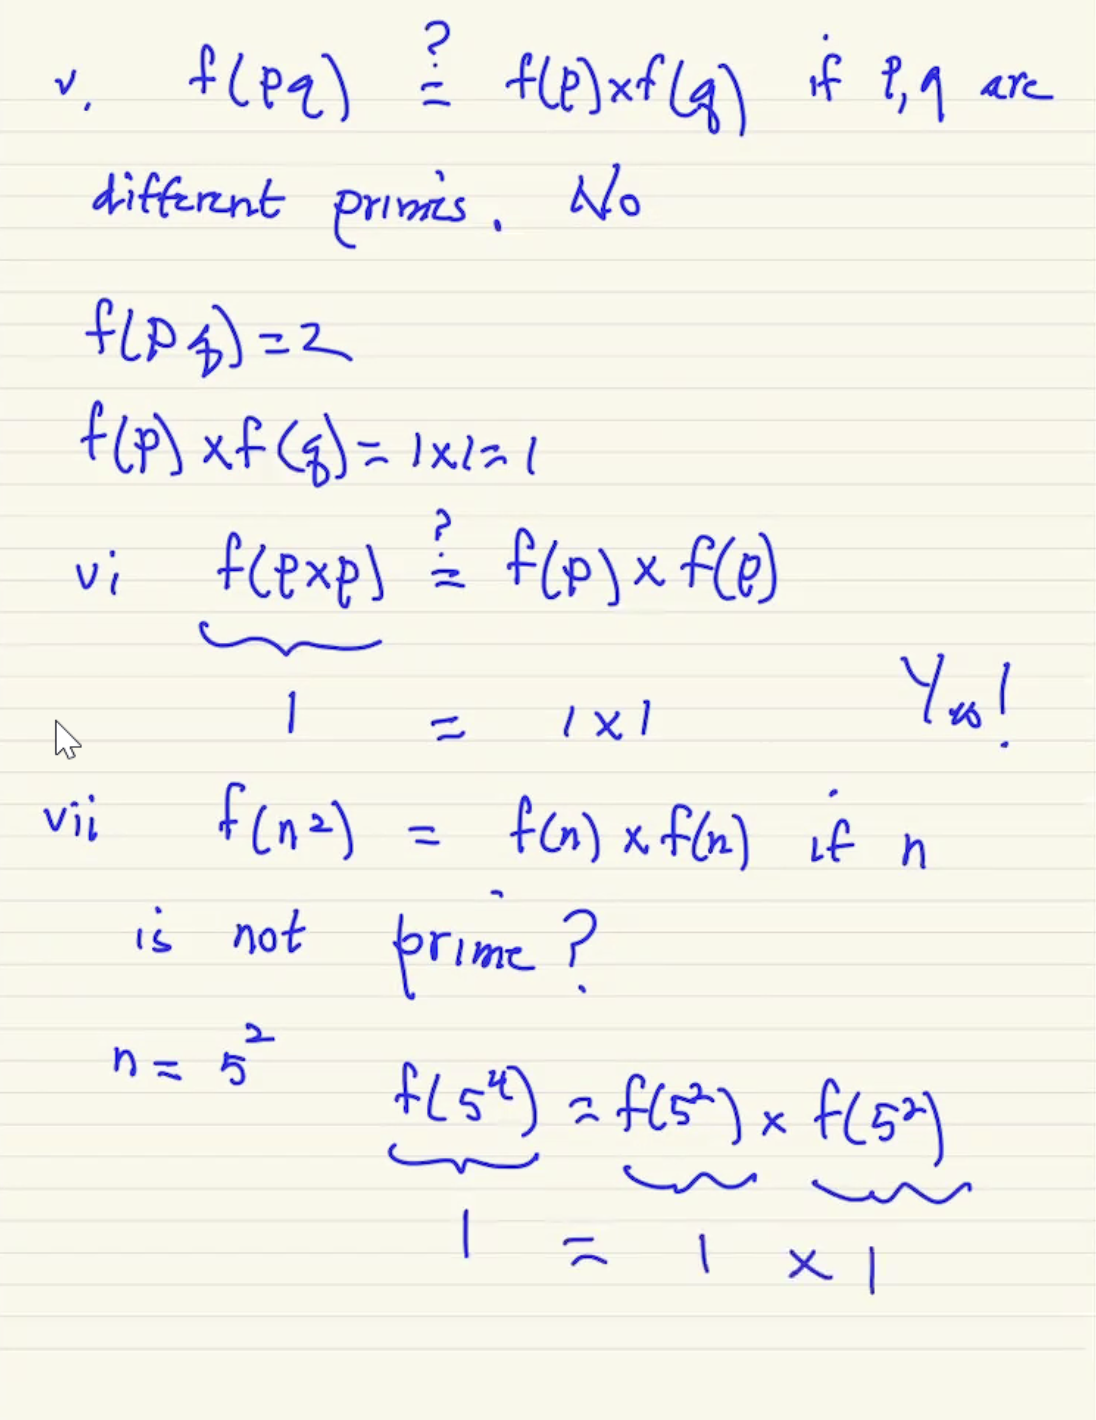 v. f(pq) ≟ f(p)xf(q) if p,q are
different primes. No
f(pq)=2
f(p) xf(q)= 1x1=1
vi f(pxp) ≟ f(p) x f(p)
1 = 1x1 Yes!
vii f(n²) = f(n) x f(n) if n
is not prime?
n = 5²
f(5⁴) = f(5²) x f(5²)
1 = 1 x 1